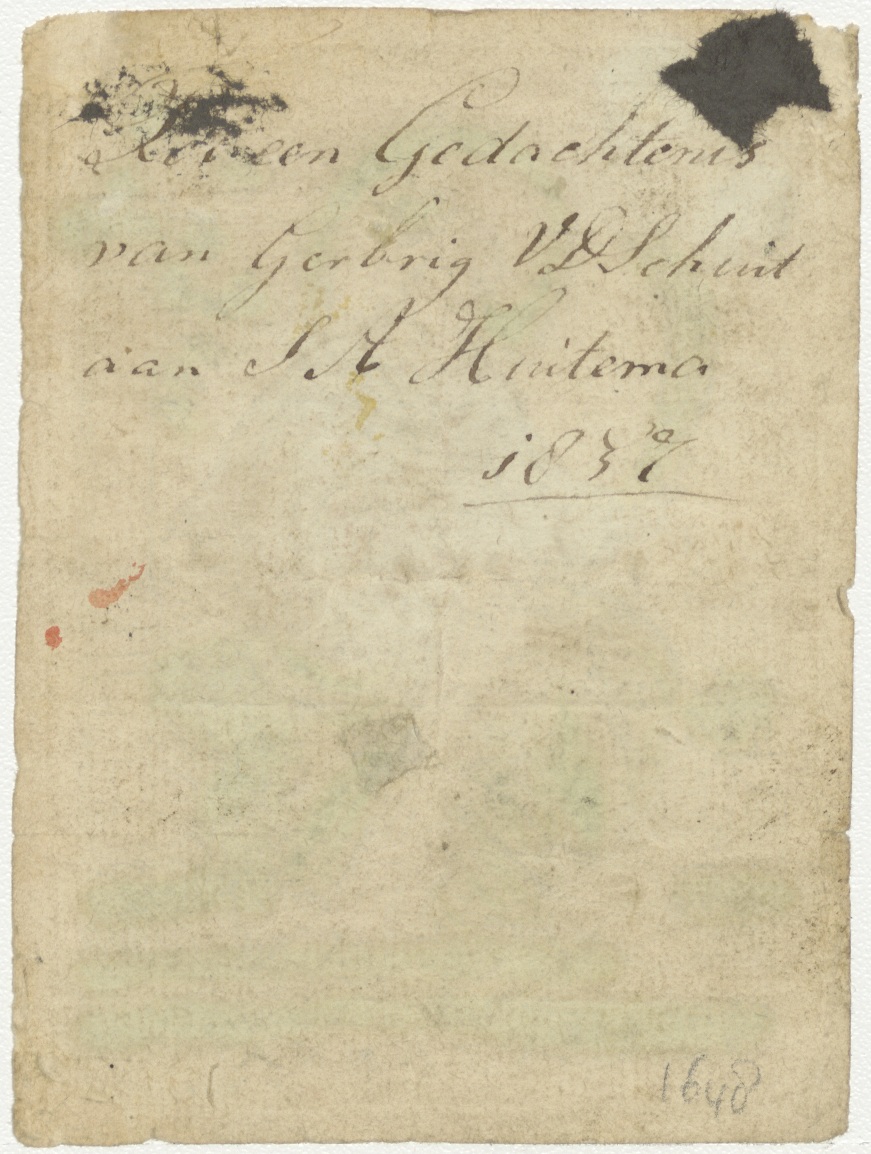 Tot een Gedachtenis
van Gerbrig VD Schuit
aan S A Huitema
1837
1648